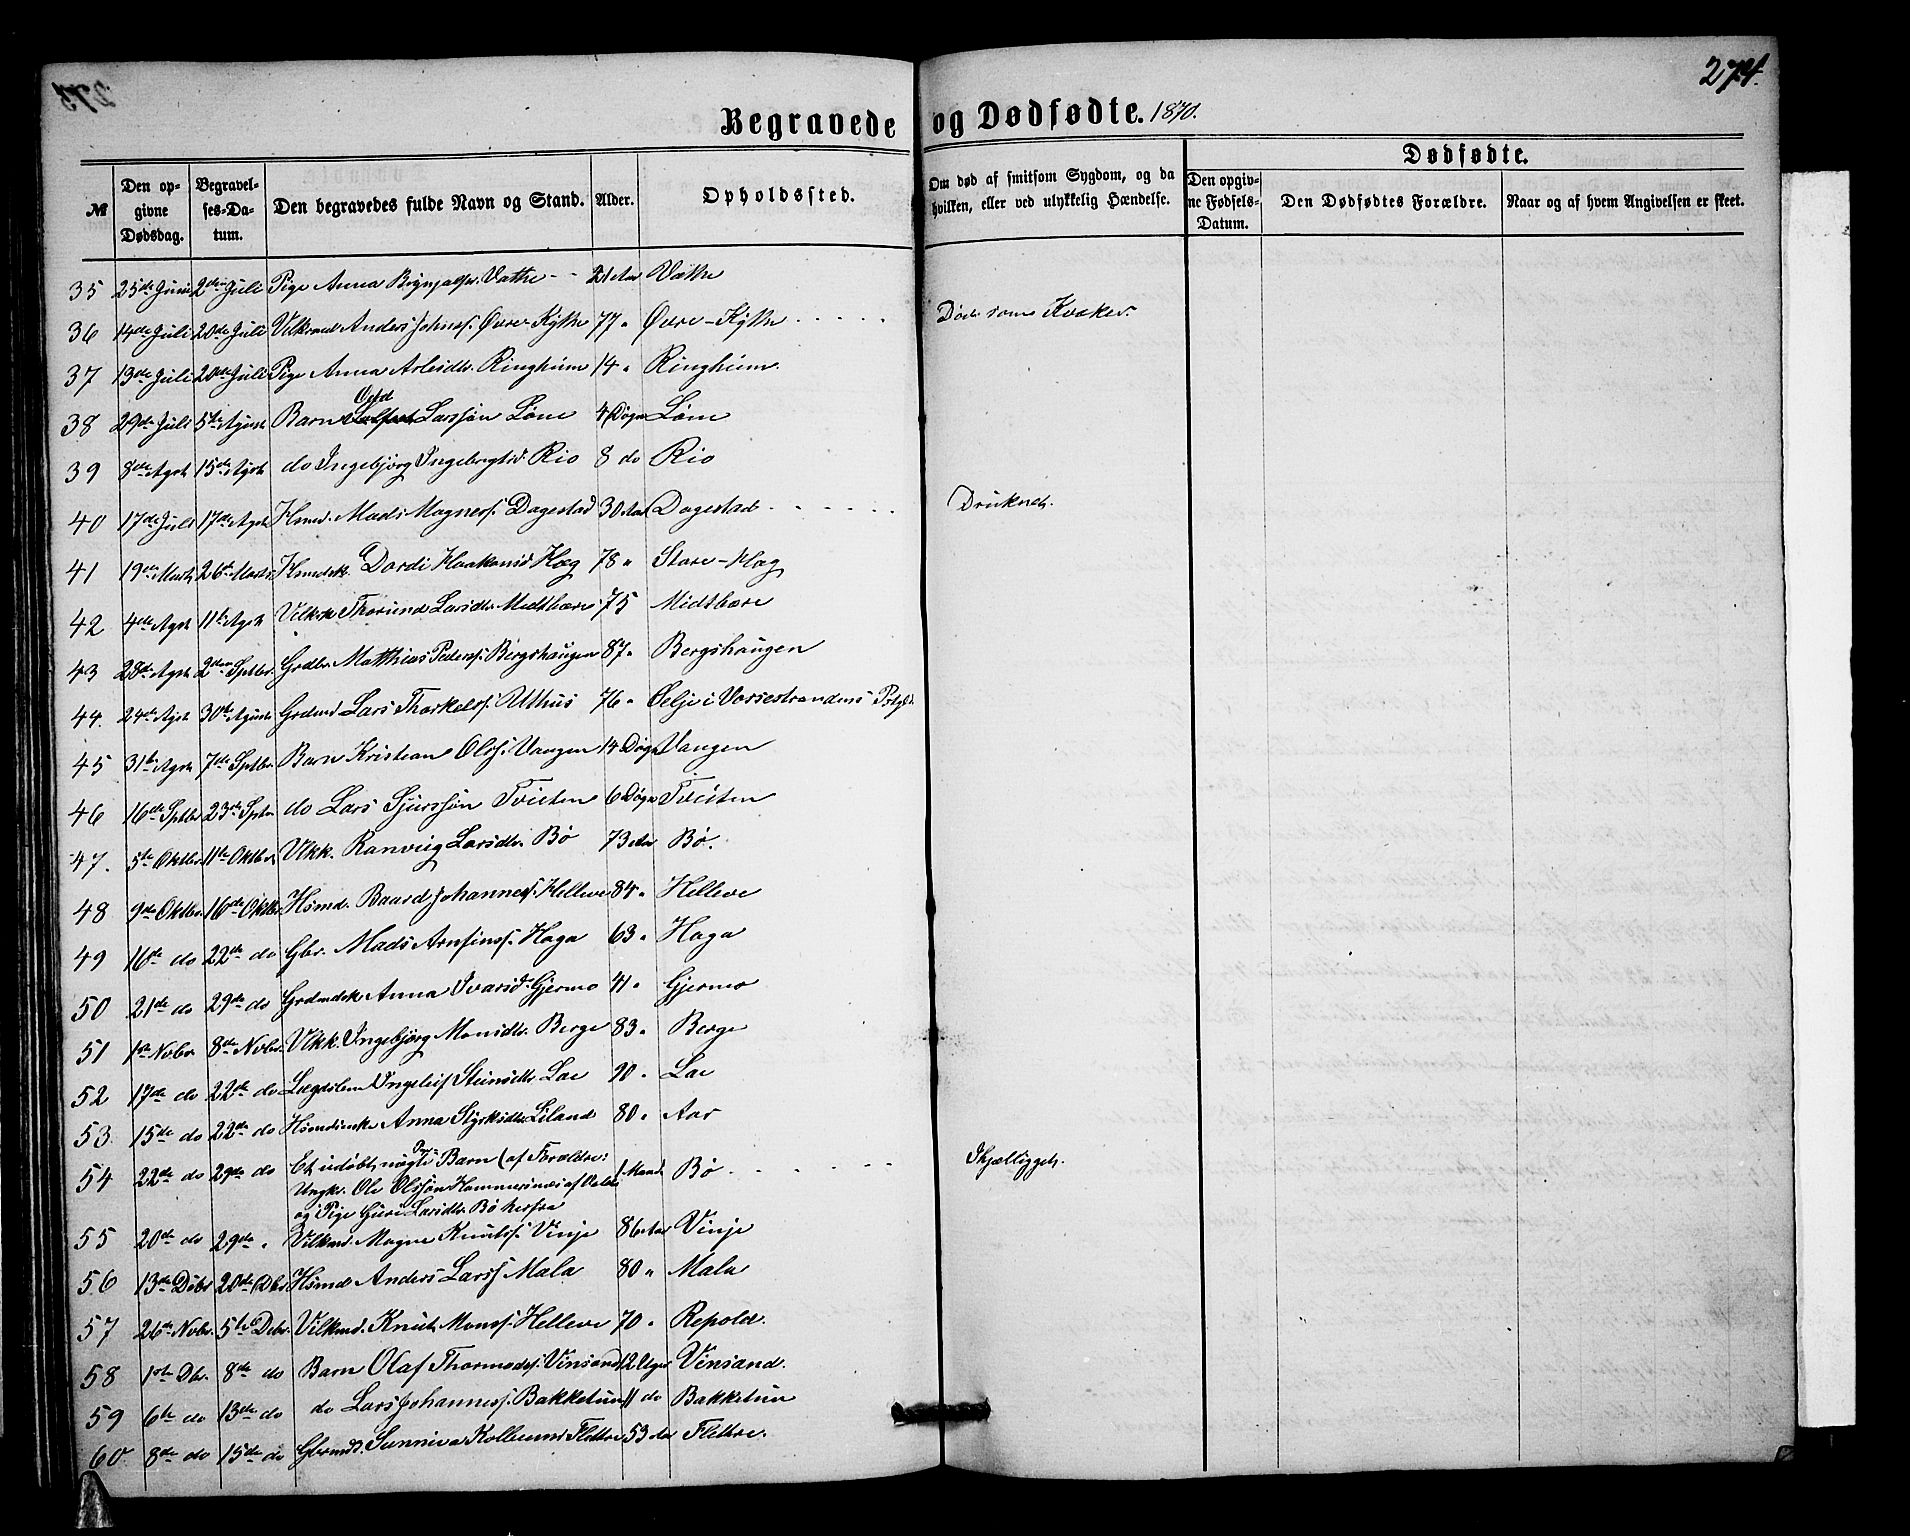 274.
Begravede og Dødfødte. 1870.
№
Den opgivne Dødsdag.
Begravelses-Datum.
Den begravedes fulde Navn og Stand.
Alder.
Opholdssted.
Om død af smitsom Sygdom, og da hvilken, eller ved ulykkelig Hændelse.
Dødfødte.
Den opgivne Fødsels-Datum.
Den Dødfødtes Forældre.
Naar og af hvem Angivelsen er skeet.
35 25de Juni 2den Juli Pige Anna Vathe - - 21 Aar Væthe
36 14de Juli 20de Juli Vilkmd Anders Johnss. Øvre-Kythe 77 " Øvre-Kythe . . . . . Død som Kvæker.
37 13de Juli 20de Juli Pige Anna Ringheim 14 " Ringheim.
38 29de Juli 5te Agust Barn Larssøn Løne 4 Døgn Løne
39 8de Agst 15de Agst do Ingebjørg Ingebrigtsd. Rio 8 do Rio
40 17de Juli 17de Agst Hmd. Mads Magness. Dagestad 30 Aar Dagestad . . . . . Druknet.
41 19de Marts 26de Marts Hmdsk. Dordi Haakonsd Hæg 78 " Store-Hæg
42 4de Agst 11te Agst Vilksk Larsdtr. Midtbære 75 Midtbære
43 28de Agst 2den Sptbr. Grdbr. Matthias Pederss. Bergshaugen 87 " Bergshaugen
44. 24de Agst 30te Agust Grdmd Lars Thorkelss. Uthus 76 " Øelje i Vossestrandens Pstgld.
45 31te Agst 7de Sptbr. Barn Kristian Olss. Vangen 14 Døgn Vangen
46 16de Sptbr 23de Sptbr do Lars Sjurssøn Tveiten 6 Døgn Tveiten
47. 5te Oktbr 11te Oktbr. Vlkk. Ranveig Larsdtr. Bø 73 Aar Bø.
48 9de Oktbr. 16de Oktbr. Hsmd. Baard Johanness. Helleve 84 " Helleve
49 16de do 22de do Gbr. Mads Arnfinss. Haga 63 " Haga
50 21de do 29de do Grdmdsk Anna Ivarsd. Gjermo 41 " Gjermo
51 1ste Nvbr 8de Nvbr. Vlkk. Ingebjørg Monsdtr. Berge 83 " Berge
52 17de do 22de do Lægdslem Ingeleif Steinsdtr. Lae 90 " Lae
53. 15de do 22de do Hsmdsenke Anna Styrksdtr. Leland 80 " Aar
54 22de do 29de do Et udøbt, uægte Barn (af Forældre: 1 Maand Bø . . . . . Ihjælligget.
Ungkr. Ole Olssøn Hammersnæs af
og Pige Guri Larsdtr. Bø herfra
55 20de do 29de " Vilkmd. Magne Knutss. Vinje 86 Aar Vinje
56 13de Debr 20de Dbr Hsmd Anders Larss. Mala 80 " Mala
57 26de Nvbr. 5te Debr. Vilkmd. Knut Monss. Helleve 70 " Repold.
58 1ste Dbr. 8de do Barn Olaf Thormodss. Vinsand 12 Uger Vinsand.
59 6te do 13de do do Lars Johanness. Bakketun 11 do Bakketun
60 8de do 15de do Sunniva Flettre 53 Aar Flettre.